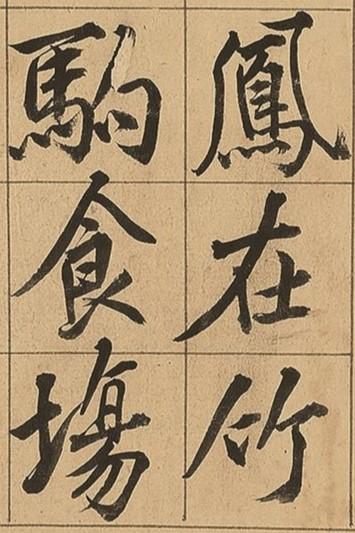 鳳在竹
駒食場